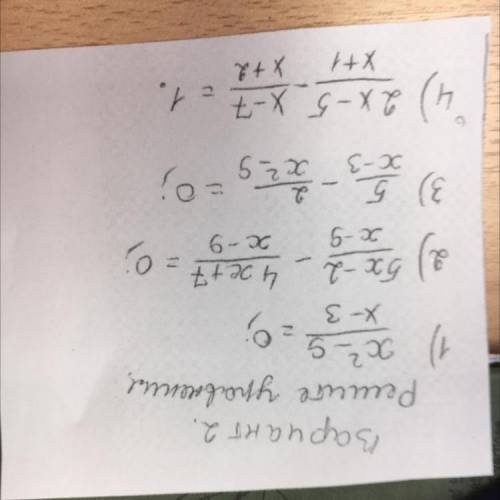 Вариант 2.
Решите уравнения.
1) (x² - 9)/(x - 3) = 0;
2) (5x - 2)/(x - 9) - (4x + 7)/(x - 9) = 0;
3) 5/(x - 3) - 2/(x² - 9) = 0;
4) (2x - 5)/(x + 1) - (x - 7)/(x + 2) = 1.